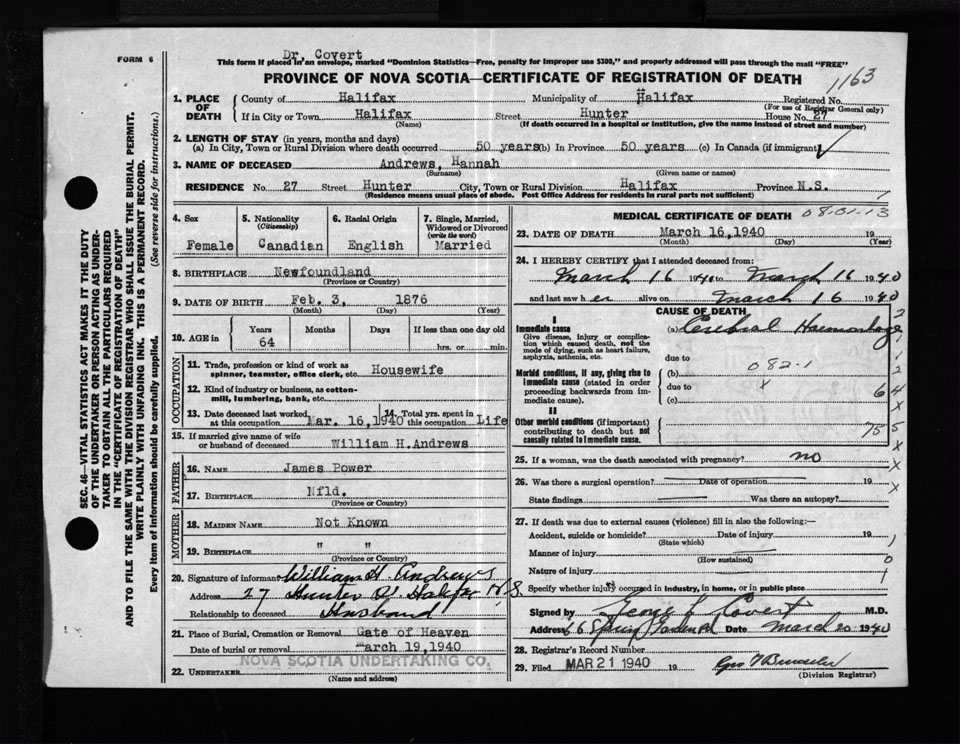 FORM 6
Dr. Covert
This form if placed in an envelope, marked "Dominion Statistics—Free, penalty for improper use $300," and properly addressed will pass through the mail "FREE"
PROVINCE OF NOVA SCOTIA—CERTIFICATE OF REGISTRATION OF DEATH
1163
1. PLACE OF DEATH { County of Halifax Municipality of Halifax Registered No.
(For use of Registrar General only)
If in City or Town Halifax Street Hunter House No. 27
(Name) (If death occurred in a hospital or institution, give the name instead of street and number)
2. LENGTH OF STAY (in years, months and days)
(a) In City, Town or Rural Division where death occurred 50 years (b) In Province 50 years (c) In Canada (if immigrant) ✓
3. NAME OF DECEASED Andrews, Hannah
(Surname) (Given name or names)
RESIDENCE No. 27 Street Hunter City, Town or Rural Division Halifax Province N.S.
(Residence means usual place of abode. Post Office Address for residents in rural parts not sufficient)
1
4. Sex
Female
5. Nationality
(Citizenship)
Canadian
6. Racial Origin
English
7. Single, Married, Widowed or Divorced
(write the word)
Married
8. BIRTHPLACE Newfoundland
(Province or Country)
9. DATE OF BIRTH Feb. 3, 1876
(Month) (Day) (Year)
10. AGE in { Years Months Days If less than one day old
64 hrs. or min.
OCCUPATION
11. Trade, profession or kind of work as
spinner, teamster, office clerk, etc. Housewife
12. Kind of industry or business, as cotton-
mill, lumbering, bank, etc.
13. Date deceased last worked
at this occupation Mar. 16, 1940
14. Total yrs. spent in
this occupation Life
15. If married give name of wife
or husband of deceased William H. Andrews
FATHER
16. NAME James Power
17. BIRTHPLACE Nfld.
(Province or Country)
MOTHER
18. MAIDEN NAME Not Known
19. BIRTHPLACE " "
(Province or Country)
20. Signature of informant William H. Andrews
Address 27 Hunter St Halifax N.S.
Relationship to deceased Husband
21. Place of Burial, Cremation or Removal Gate of Heaven
Date of burial or removal March 19, 1940
NOVA SCOTIA UNDERTAKING CO.
22. UNDERTAKER
(Name and address)
MEDICAL CERTIFICATE OF DEATH 08-01-13
23. DATE OF DEATH March 16, 1940 19
(Month) (Day) (Year)
24. I HEREBY CERTIFY that I attended deceased from:
March 16 1940 to March 16 1940
and last saw her alive on March 16 1940
CAUSE OF DEATH
I
Immediate cause
Give disease, injury or complica-
tion which caused death, not the
mode of dying, such as heart failure,
asphyxia, asthenia, etc.
(a) Cerebral Haemorrhage
due to
Morbid conditions, if any, giving rise to
immediate cause (stated in order
proceeding backwards from im-
mediate cause).
(b) 082-1
due to x
(c)
II
Other morbid conditions (if important)
contributing to death but not
causally related to immediate cause.
64
75
25. If a woman, was the death associated with pregnancy? no
26. Was there a surgical operation? Date of operation 19
State findings Was there an autopsy?
27. If death was due to external causes (violence) fill in also the following:—
Accident, suicide or homicide? Date of injury 19
(State which)
Manner of injury
(How sustained)
Nature of injury
Specify whether injury occurred in industry, in home, or in public place
Signed by Covert M.D.
Address 66 Spring Garden Rd Date March 20 1940
28. Registrar's Record Number
29. Filed MAR 21 1940 19
(Division Registrar)
SEC. 46—VITAL STATISTICS ACT MAKES IT THE DUTY
OF THE UNDERTAKER OR PERSON ACTING AS UNDER-
TAKER TO OBTAIN ALL THE PARTICULARS REQUIRED
IN THE "CERTIFICATE OF REGISTRATION OF DEATH"
AND TO FILE THE SAME WITH THE DIVISION REGISTRAR WHO SHALL ISSUE THE BURIAL PERMIT.
WRITE PLAINLY WITH UNFADING INK. THIS IS A PERMANENT RECORD.
Every item of information should be carefully supplied. (See reverse side for instructions.)